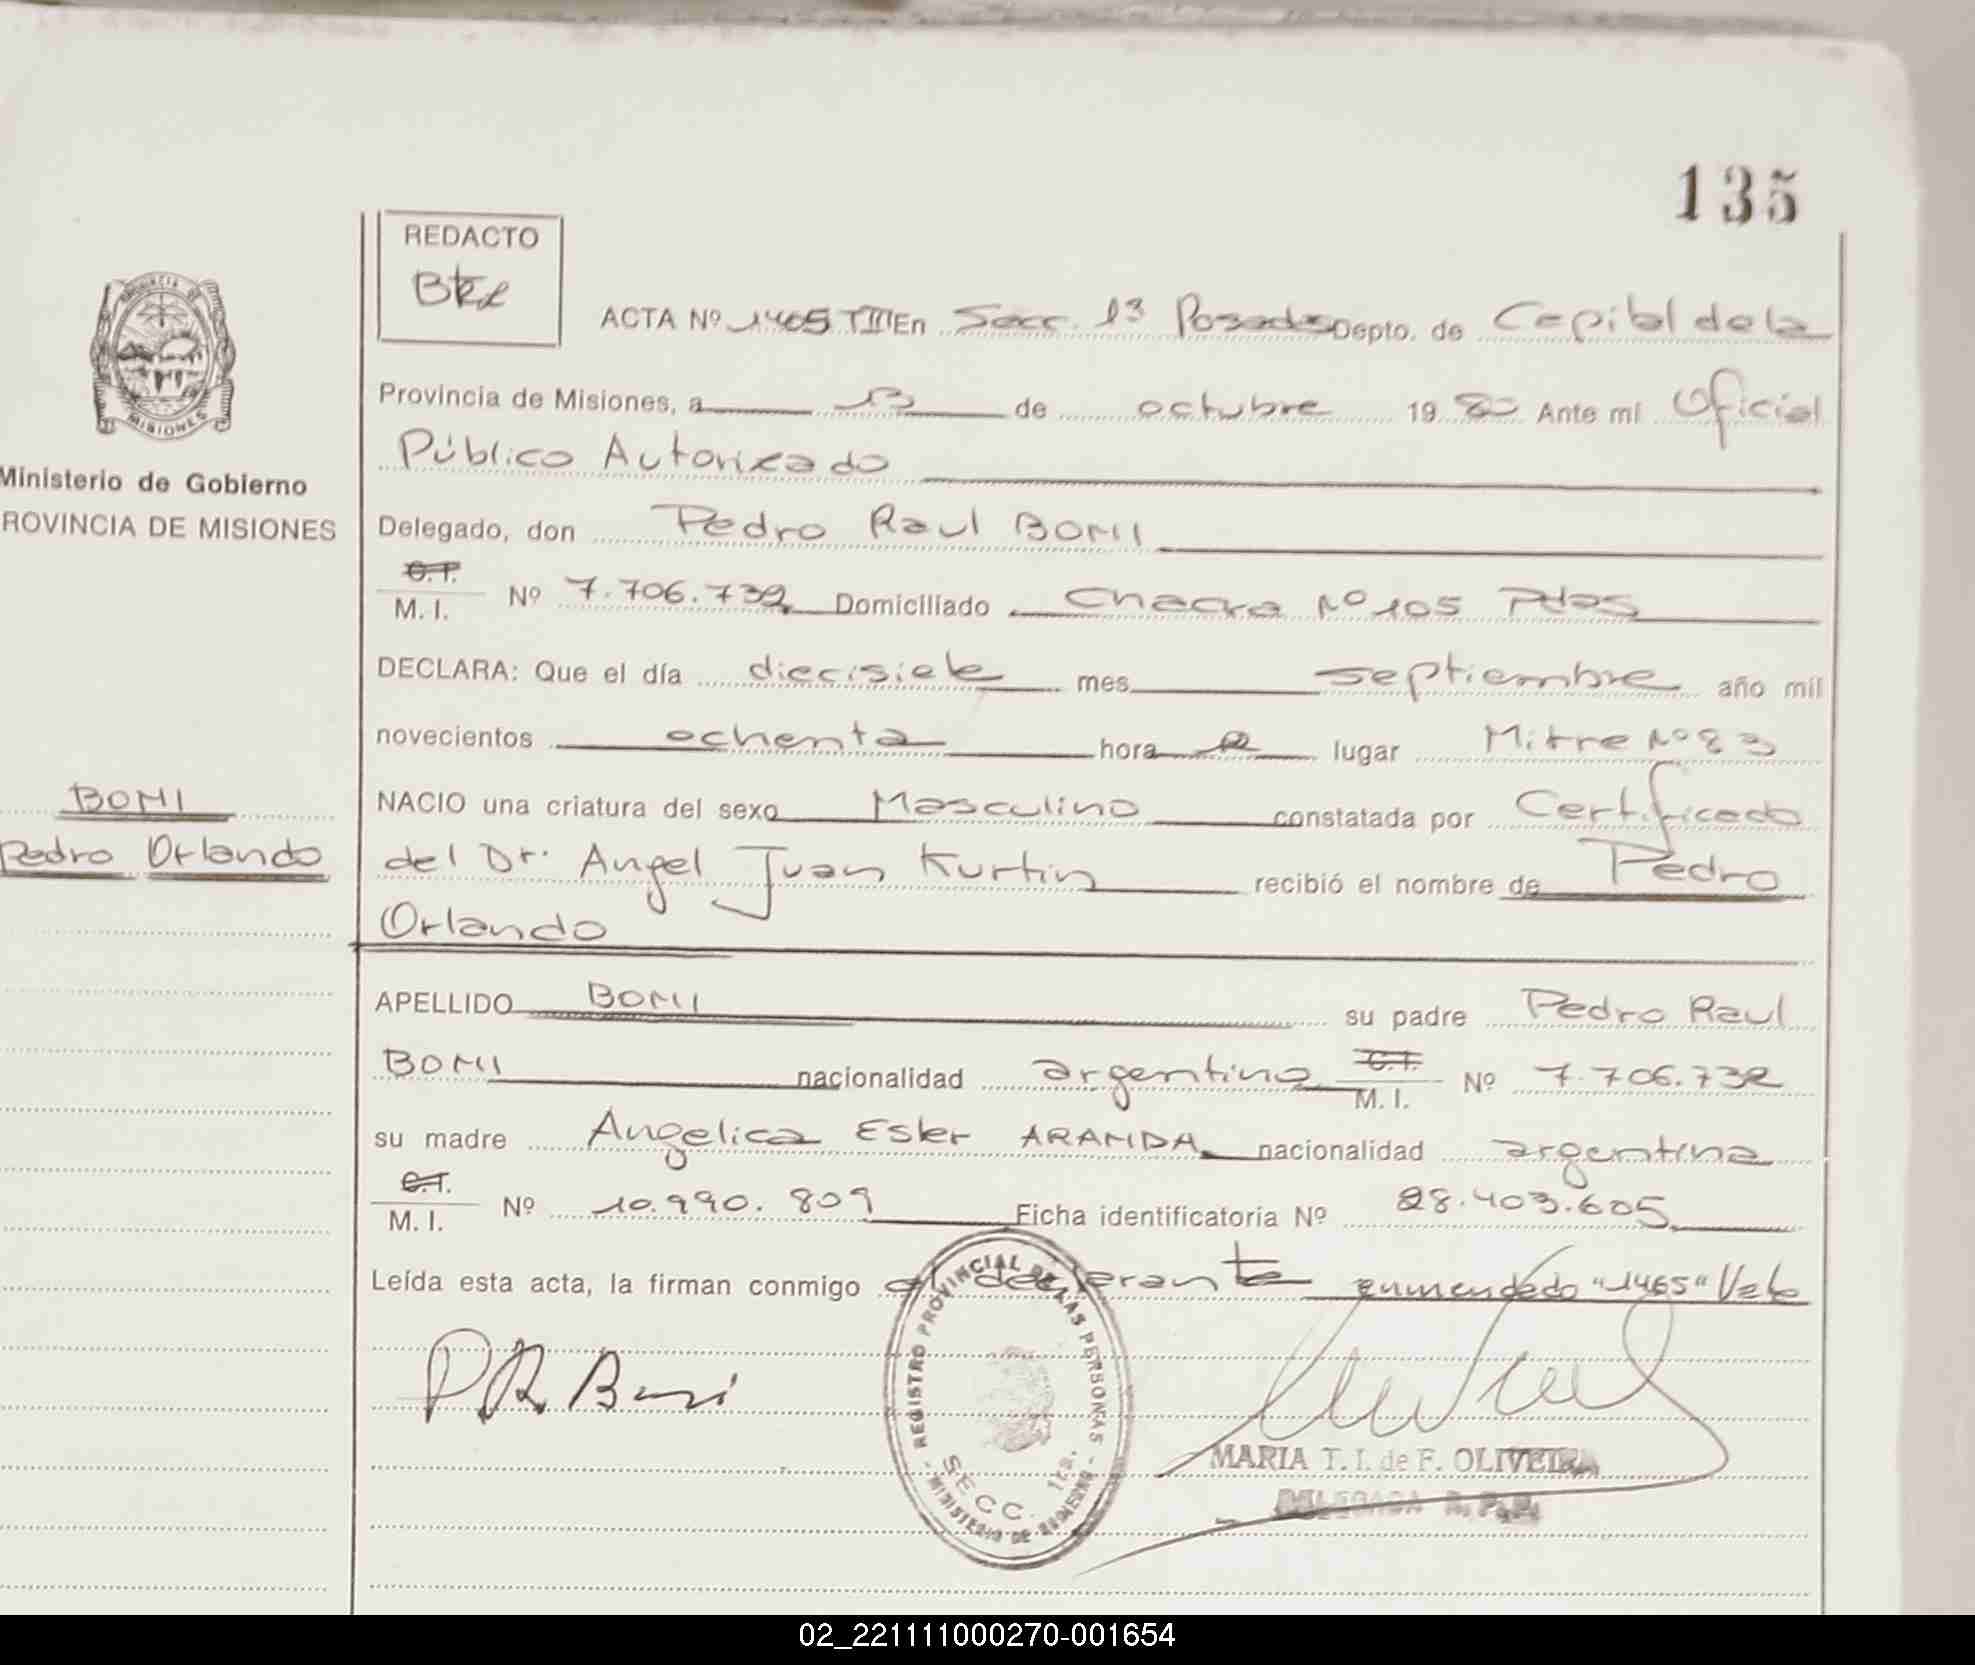 135
REDACTO
ACTA Nº 1465 TIII En Secc. 1ª Posadas Depto. de Capital de la
Provincia de Misiones, a 13 de octubre 19 80 Ante mí Oficial
Público Autorizado
Ministerio de Gobierno
ROVINCIA DE MISIONES
Delegado, don Pedro Raul BONI
C.I. M. I. Nº 7.706.732 Domiciliado Chacra Nº 105 Pdas
DECLARA: Que el día diecisiete mes septiembre año mil
novecientos ochenta hora lugar Mitre Nº 83
BONI
NACIO una criatura del sexo Masculino constatada por Certificado
Pedro Orlando
del Dr. Angel Juan Kurtin recibió el nombre de Pedro
Orlando
APELLIDO BONI su padre Pedro Raul
BONI nacionalidad argentino C.I. M. I. Nº 7.706.732
su madre Angelica Ester ARANDA nacionalidad argentina
C.I. M. I. Nº 10.990.809 Ficha identificatoria Nº 28.403.605
Leída esta acta, la firman conmigo el declarante enmendado "1465" Vale
P R Boni
REGISTRO PROVINCIAL DE LAS PERSONAS
SECC. 1ra.
- MINISTERIO DE GOBIERNO -
MARIA T. I. de F. OLIVEIRA
DELEGADA R. P. P.
02_221111000270-001654